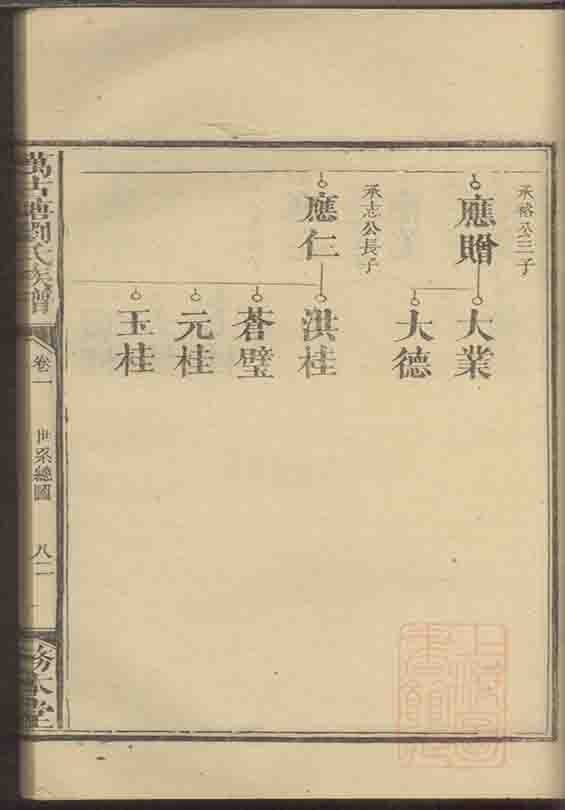 承裕公三子
應贈
大業
大德
承志公長子
應仁
洪桂
蒼璧
元桂
玉桂
萬古塘劉氏族譜
卷一
世系總圖
八二
務本堂